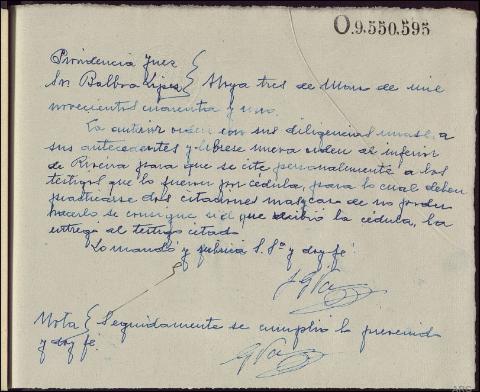 O.9.550.595
Providencia Juez
Sr. Balboa López Noya tres de Marzo de mil
novecientos cuarenta y uno.
La anterior orden con sus diligencias únase a
sus antecedentes y líbrese nueva orden al inferior
de Riveira para que se cite personalmente a los
testigos que lo fueron por cédula, para lo cual deben
practicarse dos citaciones mas, y caso de no poder
hacerlo se consigne si el que recibió la cédula, la
entregó al testigo citado.
Lo mandó y rubrica S. Sª y doy fé.
Nota Seguidamente se cumplió lo prevenido
y doy fé.